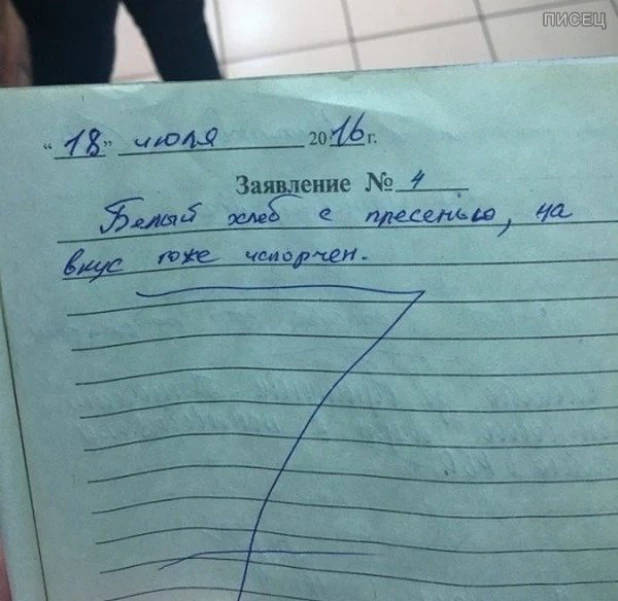 ПИСЕЦ
"18" июля 2016 г.
Заявление № 4
Белый хлеб с пресенью, на
вкус тоже испорчен.